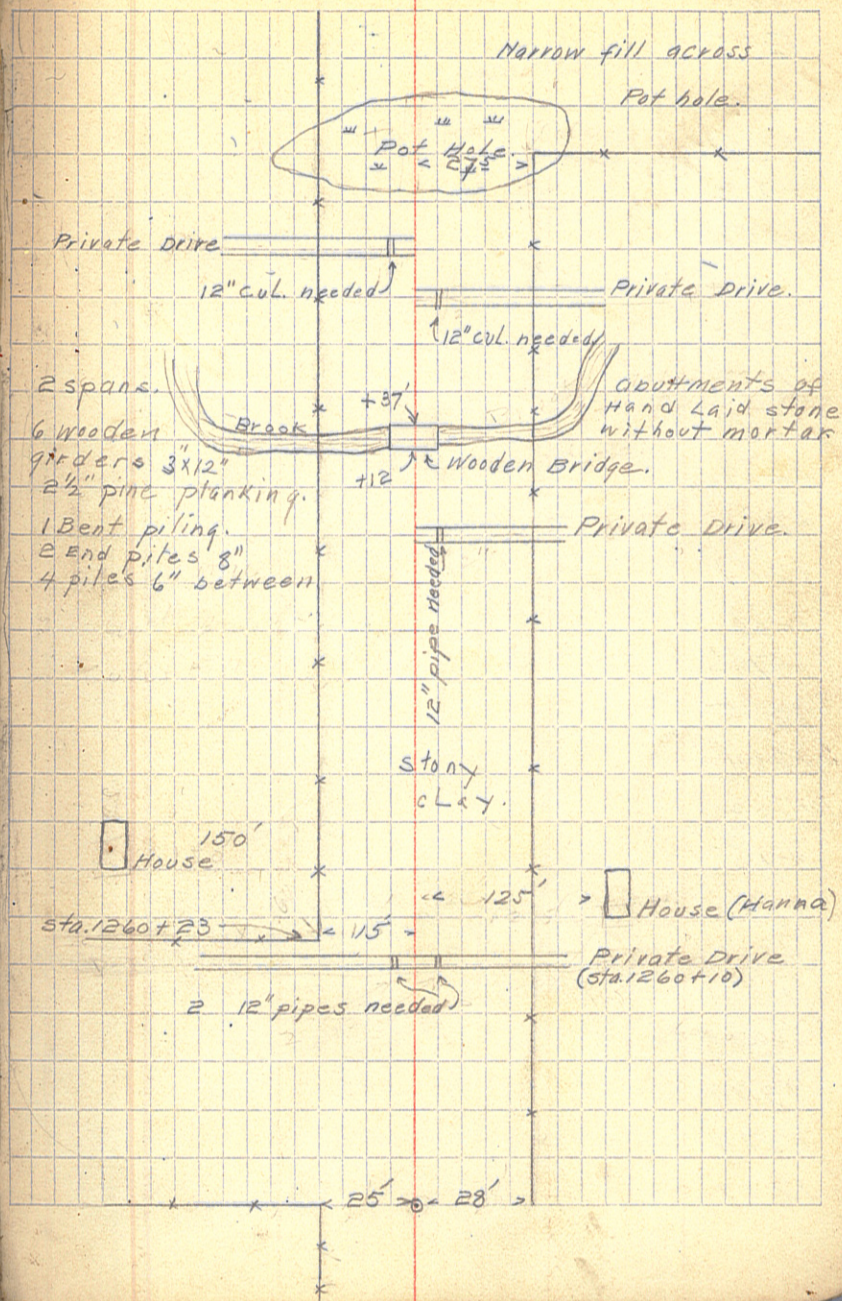 Narrow fill across
Pot hole.
Pot Hole.
Private Drive
12" cul. needed
Private Drive.
12" cul. needed
2 spans.
6 wooden
girders 3"x12"
2½" pine planking.
1 Bent piling.
2 End piles 8"
4 piles 6" between
Brook
+37'
+12
Wooden Bridge.
abuttments of
Hand Laid stone
without mortar
Private Drive.
12" pipe needed
stony
clay.
150'
House
125'
House (Hanna)
sta. 1260+23
Private Drive
(sta. 1260+10)
2 12" pipes needed
25' 28'